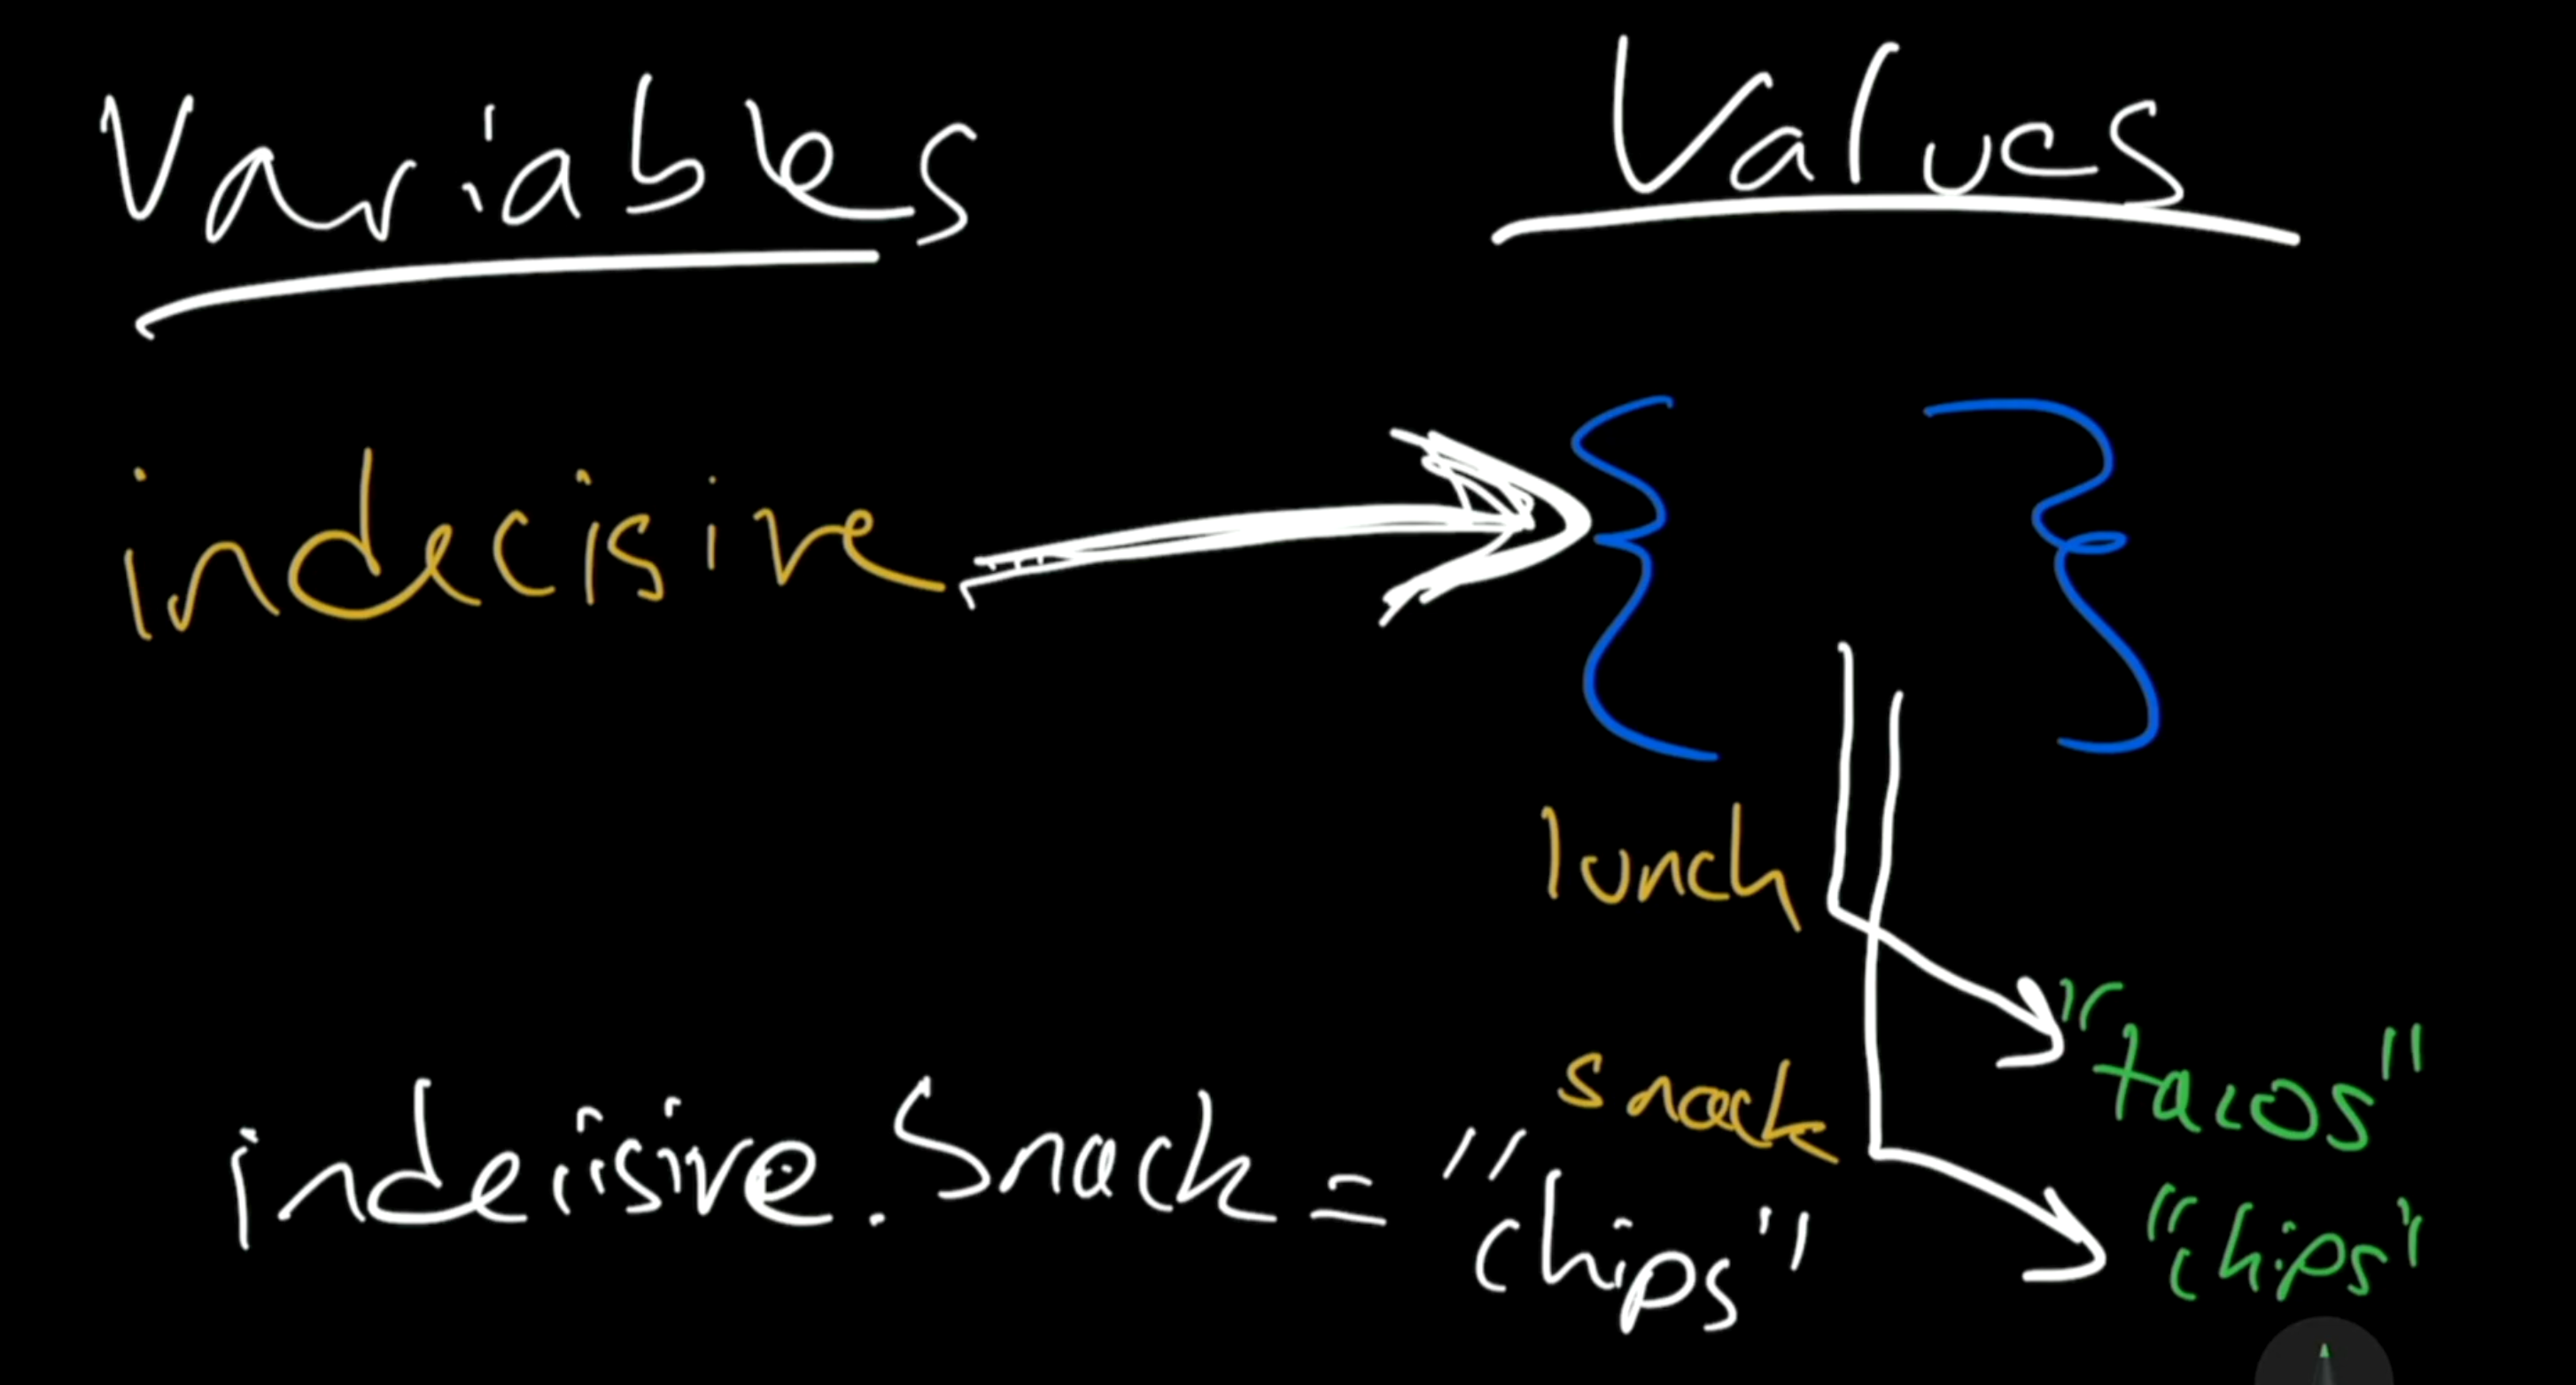 Variables
Values
indecisive
lunch
"tacos"
snack
"chips"
indecisive.Snack = "chips"